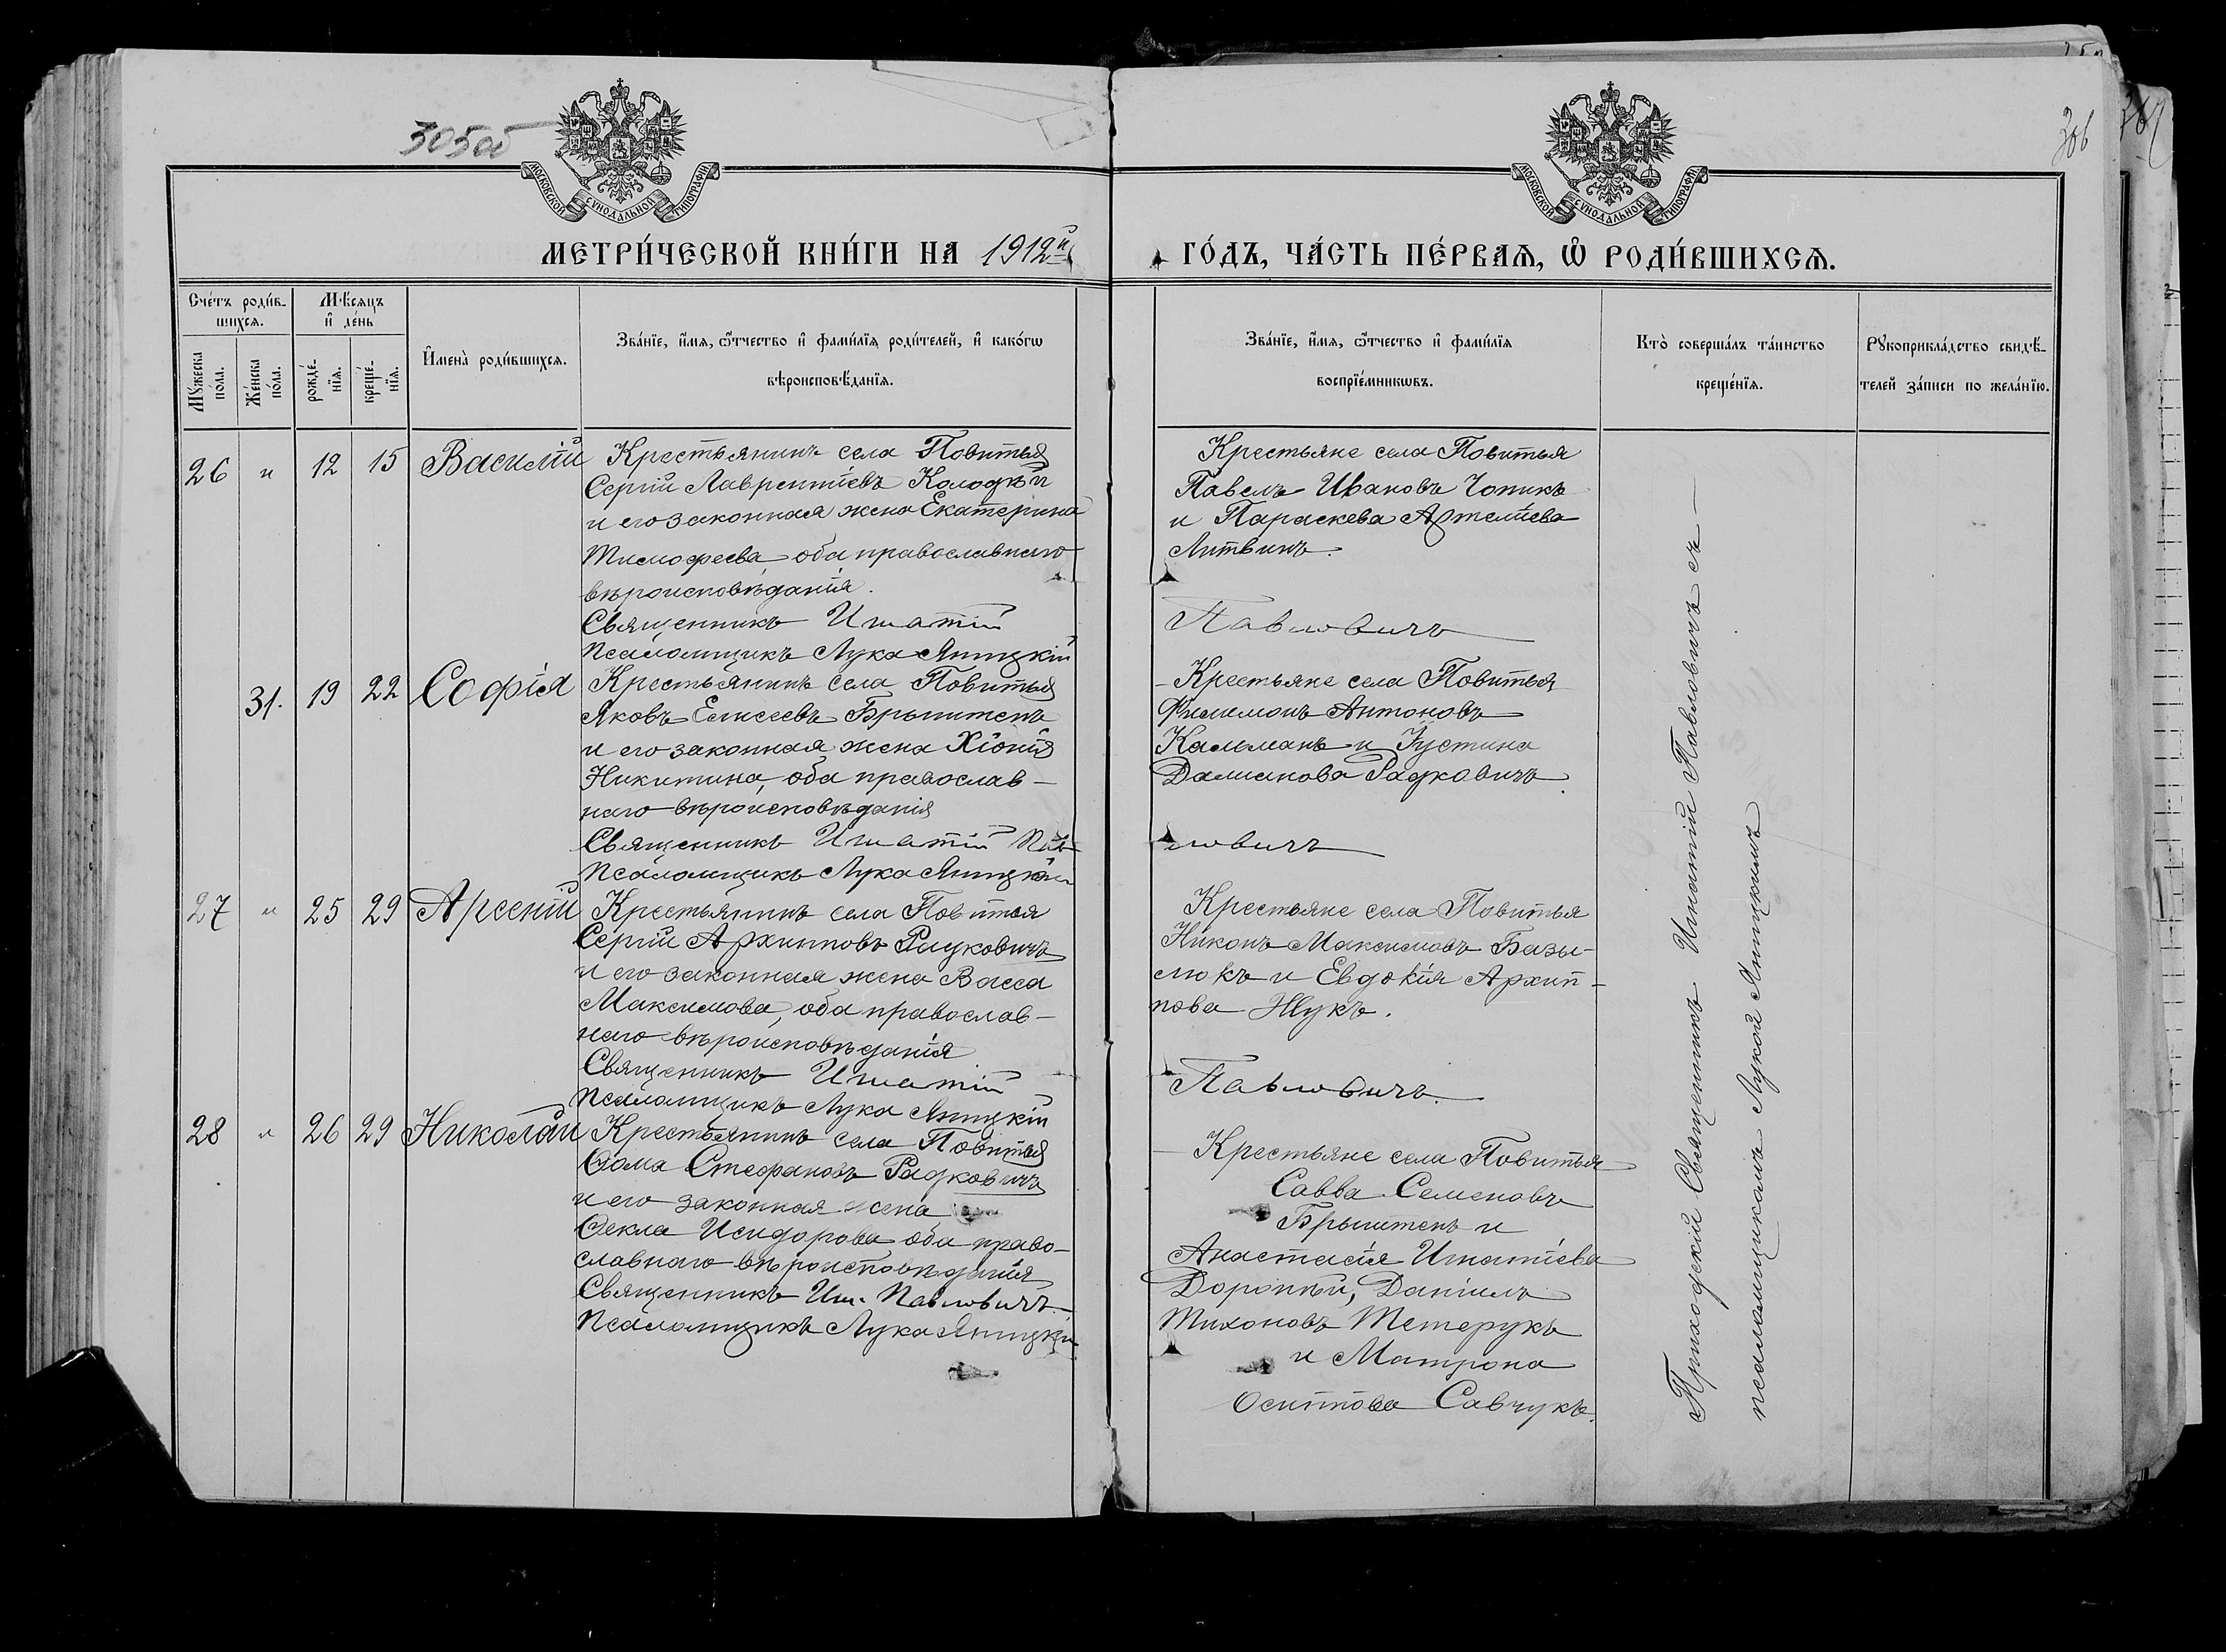 305об
306
МОСКОВСКОЙ СѴНОДАЛЬНОЙ ТИПОГРАФІИ
МОСКОВСКОЙ СѴНОДАЛЬНОЙ ТИПОГРАФІИ
МЕТРИ́ЧЕСКОЙ КНИ́ГИ НА 1912й ГО́ДЪ, ЧА́СТЬ ПЕ́РВАѦ, Ѡ҆ РОДИ́ВШИХСѦ.
Сче́тъ роди́в-
шихсѧ.
Мꙋ́жеска по́ла.
Же́нска по́ла.
Мѣ́сяцъ
и҆ де́нь
рожде́-
нїѧ.
креще́-
нїѧ.
И҆мена̀ роди́вшихсѧ.
Зва́нїе, и҆́мѧ, ѻ҆́тчество и҆ фами́лїѧ роди́телей, и҆ како́гѡ
вѣроисповѣ́данїѧ.
Зва́нїе, и҆́мѧ, ѻ҆́тчество и҆ фами́лїѧ
воспрїе́мникѡвъ.
Кто̀ соверша́лъ та́инство
креще́нїѧ.
Рꙋкоприкла́дство свидѣ́-
телей за́писи по жела́нїю.
26 " 12 15 Василій
Крестьянинъ села Повитья
Сергій Лаврентіевъ Колодѣй
и его законная жена Екатерина
Тимофеева, оба православнаго
вѣроисповѣданія.
Священникъ Игнатій Павловичъ
Псаломщикъ Лука Яницкій
Крестьяне села Повитья
Павелъ Ивановъ Чопикъ
и Параскева Артеміева
Литвинъ.
31. 19 22 Софія
Крестьянинъ села Повитья
Яковъ Елисеевъ Брынтенъ
и его законная жена Хіонія
Никитина, оба православ-
наго вѣроисповѣданія
Священникъ Игнатій Павловичъ
Псаломщикъ Лука Яницкій
Крестьяне села Повитья
Филимонъ Антоновъ
Кальманъ и Іустина
Даміанова Радковичъ.
27 " 25 29 Арсеній
Крестьянинъ села Повитья
Сергій Архиповъ Радковичъ
и его законная жена Васса
Максимова, оба православ-
наго вѣроисповѣданія
Священникъ Игнатій Павловичъ.
Псаломщикъ Лука Яницкій
Крестьяне села Повитья
Никонъ Максимовъ Базы-
люкъ и Евдокія Архип-
пова Жукъ.
28 " 26 29 Николай
Крестьянинъ села Повитья
Ѳома Стефановъ Радковичъ
и его законная жена
Ѳекла Исидорова оба право-
славнаго вѣроисповѣданія
Священникъ Игн. Павловичъ
Псаломщикъ Лука Яницкій
Крестьяне села Повитья
Савва Семеновъ
Брынтенъ и
Анастасія Игнатіева
Доропѣй, Даніилъ
Тихоновъ Тетерукъ
и Матрона
Осиповa Савчукъ.
Приходскій Священникъ Игнатій Павловичъ съ
псаломщикомъ Лукой Яницкимъ